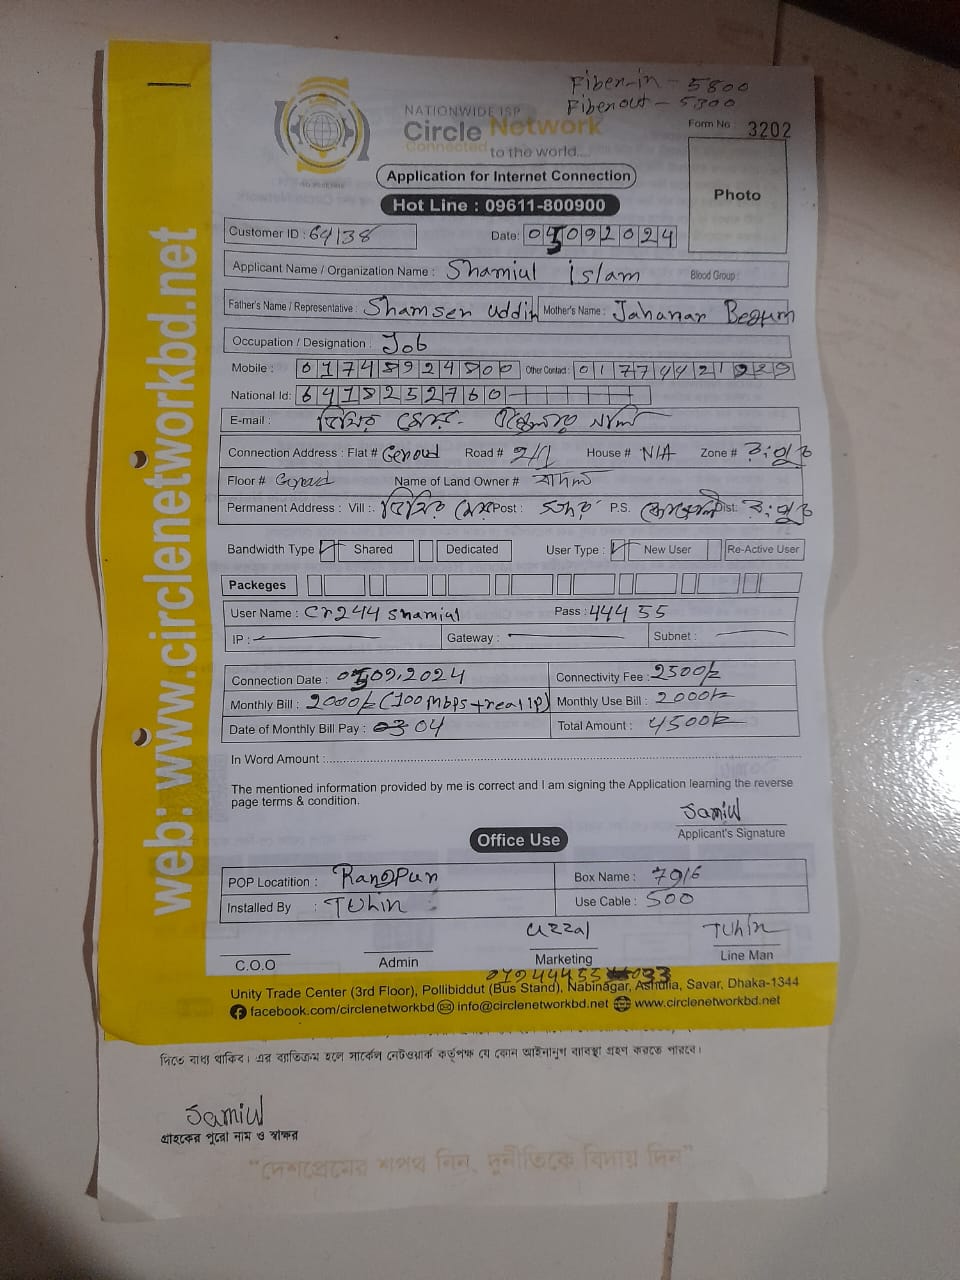 Fiber in - 5800
Fiber out - 5300
NATIONWIDE ISP
Circle Network
Connected to the world....
Form No : 3202
Application for Internet Connection
Photo
Hot Line : 09611-800900
Customer ID : 64138
Date: 05092024
Applicant Name / Organization Name : Shamiul islam Blood Group :
Father's Name / Representative : Shamser uddin Mother's Name : Jahanar Begum
Occupation / Designation : Job
Mobile : 01748924800 Other Contact : 01774421989
National Id: 6418252760
E-mail :
Connection Address : Flat # Road # 2/1 House # N/A Zone # রংপুর
Floor # Name of Land Owner #
Permanent Address : Vill :. Post : সদর P.S. Dist: রংপুর
Bandwidth Type Shared Dedicated User Type : New User Re-Active User
Packeges
User Name : Cr244 shamiul Pass : 44455
IP : Gateway : Subnet :
Connection Date : 05,09,2024 Connectivity Fee : 2500/=
Monthly Bill : 2000/= (100 Mbps + real ip) Monthly Use Bill : 2000/=
Date of Monthly Bill Pay : 04 Total Amount : 4500/=
In Word Amount :
The mentioned information provided by me is correct and I am signing the Application learning the reverse
page terms & condition.
Samiul
Applicant's Signature
Office Use
POP Locatition : Rangpur Box Name : 79/6
Installed By : Tuhin Use Cable : 500
uzzal Tuhin
C.O.O Admin Marketing Line Man
Unity Trade Center (3rd Floor), Pollibiddut (Bus Stand), Nabinagar, Ashulia, Savar, Dhaka-1344
facebook.com/circlenetworkbd info@circlenetworkbd.net www.circlenetworkbd.net
web: www.circlenetworkbd.net
দিতে বাধ্য থাকিব। এর ব্যতিক্রম হলে সার্কেল নেটওয়ার্ক কর্তৃপক্ষ যে কোন আইনানুগ ব্যবস্থা গ্রহণ করতে পারবে।
Samiul
গ্রাহকের পুরো নাম ও স্বাক্ষর
"দেশপ্রেমের শপথ নিন, দুর্নীতিকে বিদায় দিন"